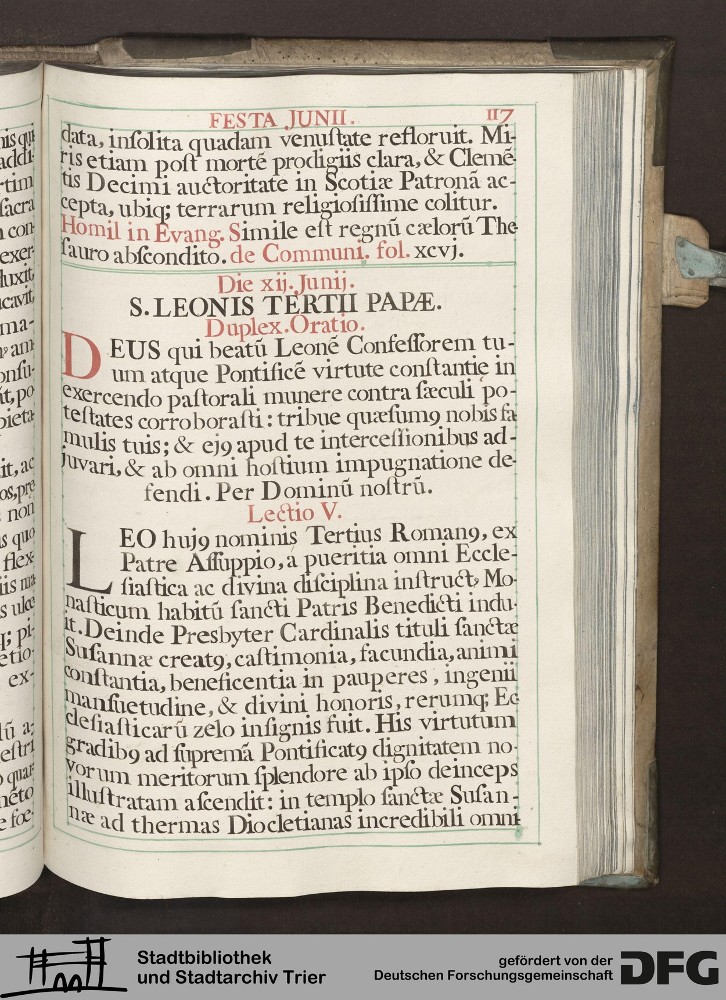 FESTA JUNII. 117
data, insolita quadam venustate refloruit. Mi-
ris etiam post morté prodigiis clara, & Clemē-
tis Decimi auctoritate in Scotiæ Patronā ac-
cepta, ubiq; terrarum religiosissime colitur.
Homil in Evang. Simile est regnū cælorū The
sauro abscondito. de Communi. fol. xcvj.
Die xij. Junij.
S. LEONIS TERTII PAPÆ.
Duplex. Oratio.
DEUS qui beatū Leonē Confessorem tu-
um atque Pontificē virtute constantię in
exercendo pastorali munere contra sæculi po-
testates corroborasti: tribue quæsumꝰ nobis fa
mulis tuis; & ejꝰ apud te intercessionibus ad-
juvari, & ab omni hostium impugnatione de-
fendi. Per Dominū nostrū.
Lectio V.
LEO hujꝰ nominis Tertius Romanꝰ, ex
Patre Assuppio, a pueritia omni Eccle-
siastica ac divina disciplina instructꝰ, Mo-
nasticum habitū sancti Patris Benedicti indu-
it. Deinde Presbyter Cardinalis tituli sanctæ
Susannæ creatꝰ, castimonia, facundia, animi
constantia, beneficentia in pauperes, ingenii
mansuetudine, & divini honoris, rerumq; Ec
clesiasticarū zelo insignis fuit. His virtutum
gradibꝰ ad supremā Pontificatꝰ dignitatem no-
vorum meritorum splendore ab ipso deinceps
illustratam ascendit: in templo sanctæ Susan-
næ ad thermas Diocletianas incredibili omni-
Stadtbibliothek
und Stadtarchiv Trier
gefördert von der
Deutschen Forschungsgemeinschaft
DFG